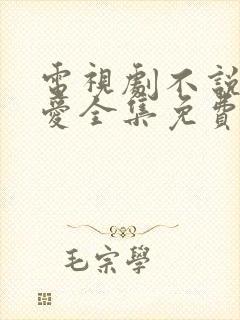 電視劇不說
愛全集免費
毛宗學